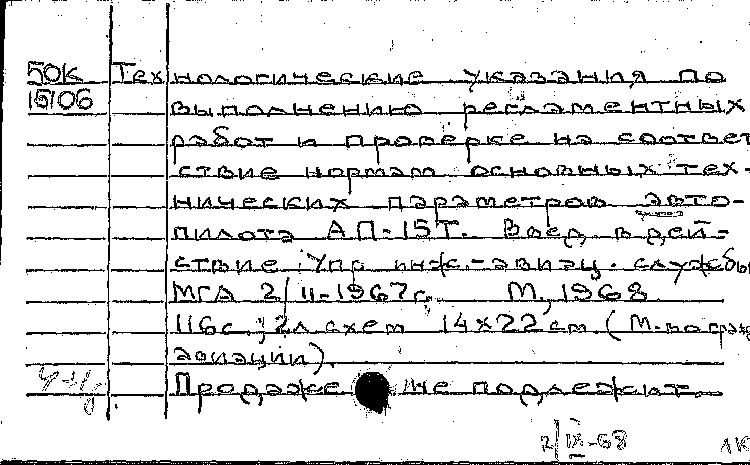 50к Технологические указания по
15106 выполнению регламентных
работ и проверке на соответ
ствие нормам основных тех-
нических параметров авто-
пилота АП-15Т. Введ. в дей-
ствие Упр инж.-авиац. службы
МГА 2/II-1967г. М., 1968.
116с.; 2л схем 14х22см. (М-во граж
авиации).
Продаже не подлежит.
2/IX-68 1К